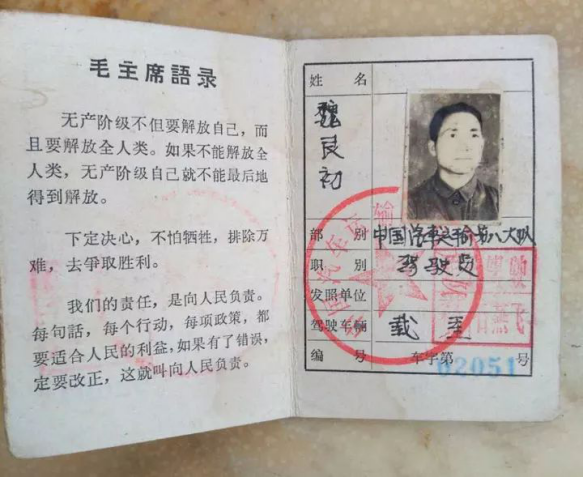 毛主席語录
无产阶级不但要解放自己，而
且要解放全人类。如果不能解放全
人类，无产阶级自己就不能最后地
得到解放。
下定决心，不怕牺牲，排除万
难，去爭取胜利。
我们的责任，是向人民负责。
每句話，每个行动，每项政策，都
要适合人民的利益，如果有了错误，
定要改正，这就叫向人民负责。
姓名
魏良初
部别 中国汽車运输第八大队
职别 驾驶员
发照单位
驾驶车辆 载重
编号 车字第 02051 号